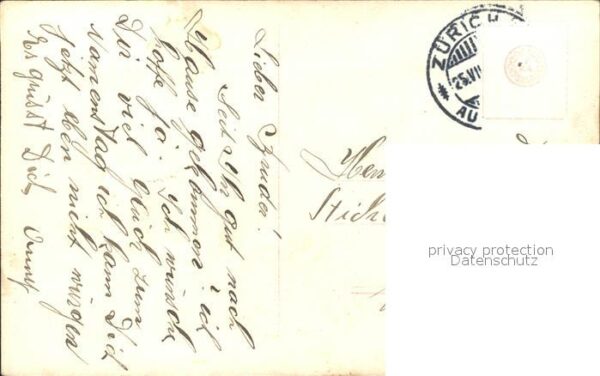 Lieber Bruder!
Seit Ihr gut nach
Hause gekommen? ich
hoffe ja. Ich wünsche
Dir viel Glück zum
Namenstag ich kann Dich
jetzt eben nicht würgen
Es grüsst Dich Anny
ZÜRICH
25.VII
AU
Her
Stick
privacy protection
Datenschutz